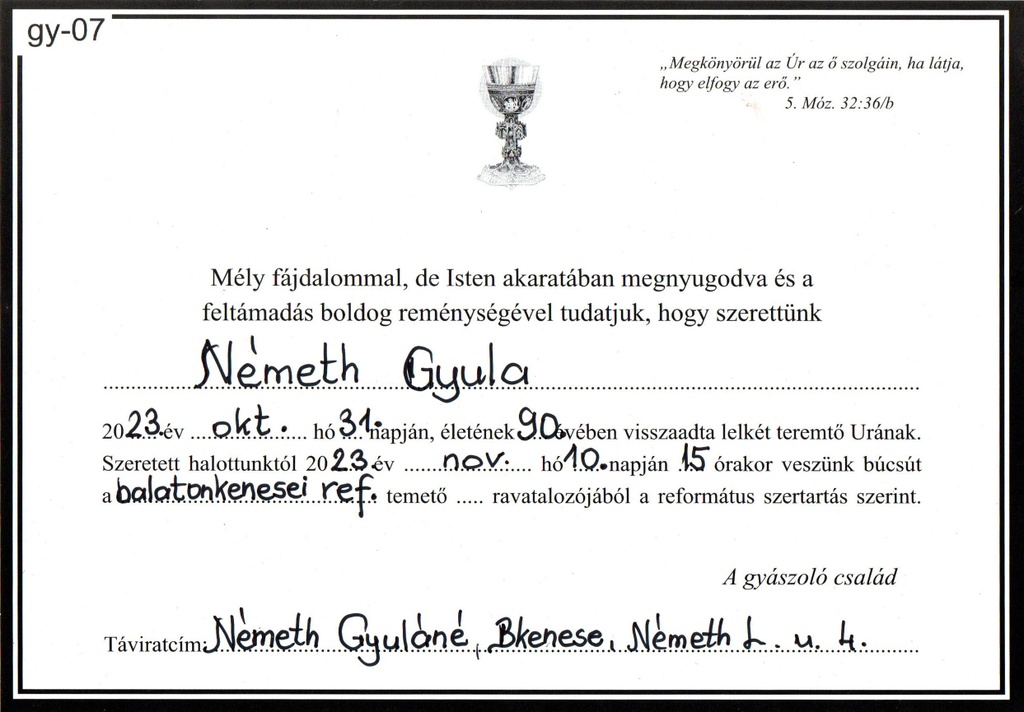 gy-07
„Megkönyörül az Úr az ő szolgáin, ha látja,
hogy elfogy az erő.”
5. Móz. 32:36/b
Mély fájdalommal, de Isten akaratában megnyugodva és a
feltámadás boldog reménységével tudatjuk, hogy szerettünk
Németh Gyula
2023. év okt. hó 31. napján, életének 90. évében visszaadta lelkét teremtő Urának.
Szeretett halottunktól 2023. év nov. hó 10. napján 15 órakor veszünk búcsút
a balatonkenesei ref. temető ..... ravatalozójából a református szertartás szerint.
A gyászoló család
Táviratcím: Németh Gyuláné, Bkenese, Németh L. u. 4.